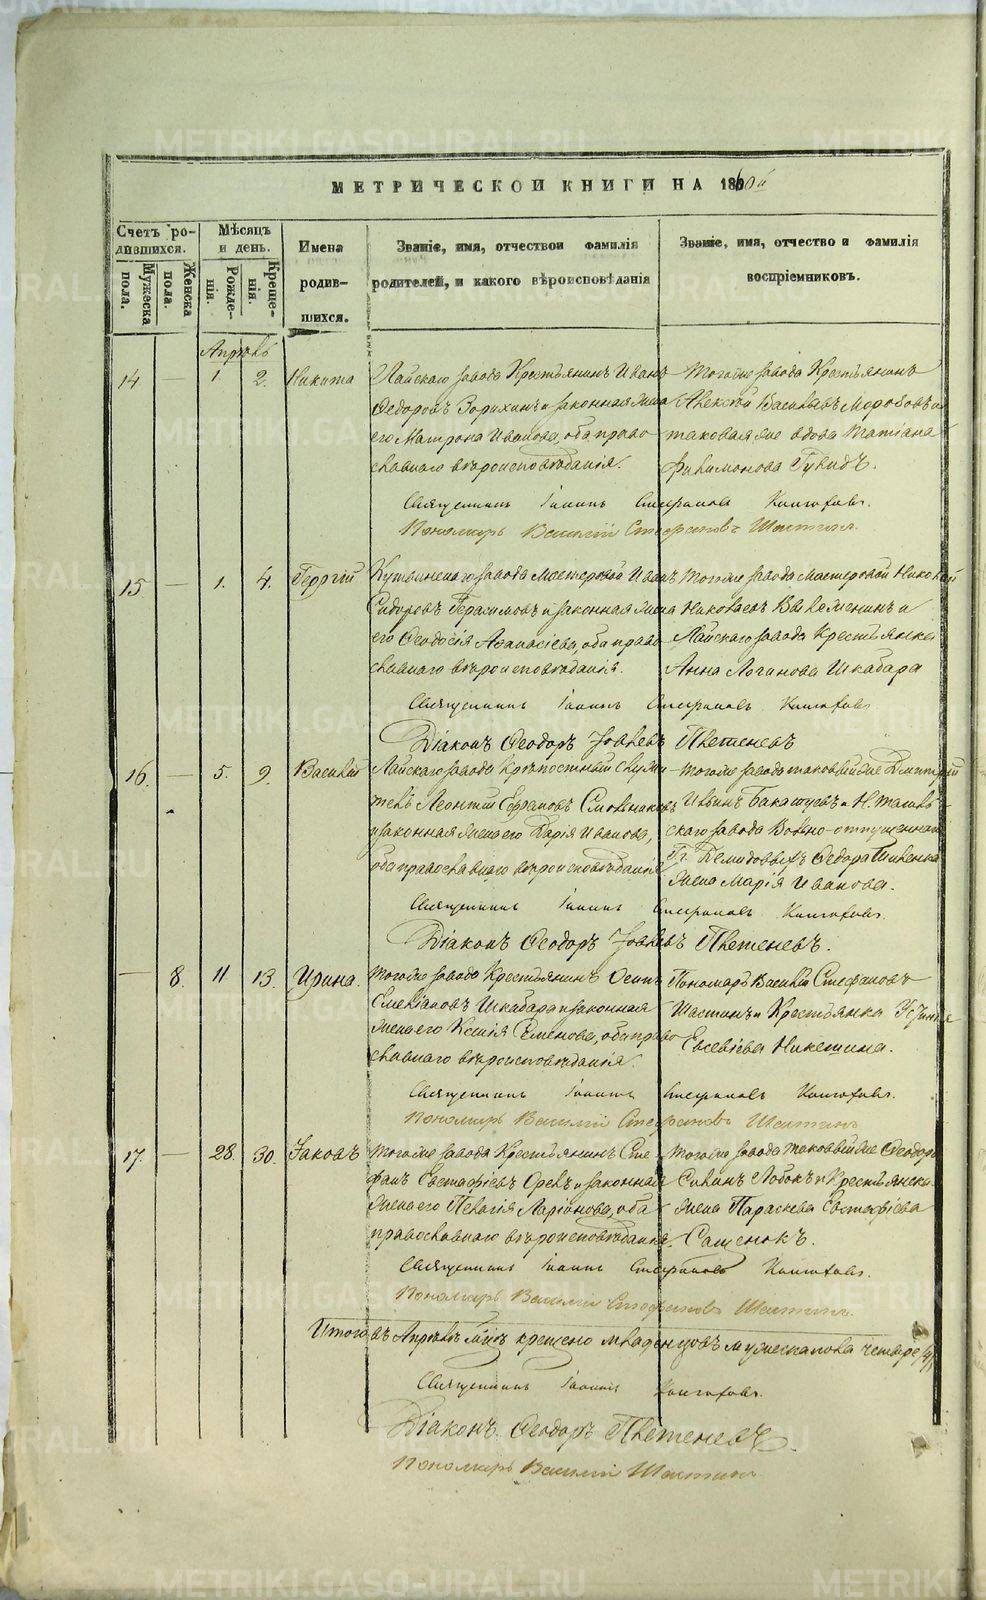 МЕТРИЧЕСКОЙ КНИГИ НА 1860й
Счетъ родившихся.
Мужеска пола.
Женска пола.
Мѣсяцъ и день.
Рожденія.
Крещенія.
Имена родившихся.
Званіе, имя, отчество и фамилія
родителей, и какого вѣроисповѣданія
Званіе, имя, отчество и фамилія
воспріемниковъ.
Апрѣль
14 — 1. 2. Никита
Лайскаго завода Крестьянинъ Иванъ
Федоровъ Зорихинъ и законная жена
его Матрона Иванова, оба право-
славнаго вѣроисповѣданія.
Тогоже завода Крестьянинъ
Алексѣй Васильевъ Моробовъ и
таковая же вдова Татіана
Филимонова
Священникъ Іоаннъ Стефановъ
Пономарь Василій Стефановъ Шастинъ.
15. — 1. 4. Георгій
Кушвинскаго завода Мастеровой Иванъ
Сидоровъ Герасимовъ и законная жена
его Ѳеодосія Аѳанасіева, оба право-
славнаго вѣроисповѣданія.
Тогоже завода мастеровой Николай
Николаевъ и
Лайскаго завода Крестьянка
Анна Логинова Шкабара
Священникъ Іоаннъ Стефановъ
Діаконъ Ѳеодоръ Іовлевъ Плетеневъ
16. — 5. 9. Василій
Лайскаго завода Крѣпостный служи-
тель Леонтій Ефремовъ
и законная жена его Дарія Иванова,
оба православнаго вѣроисповѣданія
Тогоже завода таковый же Дмитрій
Ильинъ и Н. Тагиль-
скаго завода Вольно-отпущеннаго
Гг. Демидовыхъ Ѳедора
жена Марія Иванова.
Священникъ Іоаннъ Стефановъ
Діаконъ Ѳеодоръ Іовлевъ Плетеневъ.
— 8. 11 13. Ирина.
Тогоже завода Крестьянинъ Осипъ
Шкабара и законная
жена его Ксенія Семенова, оба право-
славнаго вѣроисповѣданія.
Пономарь Василій Стефановъ
Шастинъ и Крестьянка Устинья
Евсевіева Никетина.
Священникъ Іоаннъ Стефановъ
Пономарь Василій Стефановъ Шастинъ
17. — 28. 30. Іаковъ
Тогоже завода Крестьянинъ Сте-
фанъ Евстафіевъ Орелъ и законная
жена его Пелагія Ларіонова, оба
православнаго вѣроисповѣданія.
Тогоже завода таковый же Ѳеодоръ
Лобокъ и Крестьянска
жена Параскева Евстафіева
Сащенокъ.
Священникъ Іоаннъ Стефановъ
Пономарь Василій Стефановъ Шастинъ.
Итого въ Апрѣлѣ м-цѣ крещено младенцовъ мужеска пола четыре /4/
Священникъ Іоаннъ
Діаконъ Ѳеодоръ Плетеневъ.
Пономарь Василій Шастинъ
METRIKI.GASO-URAL.RU